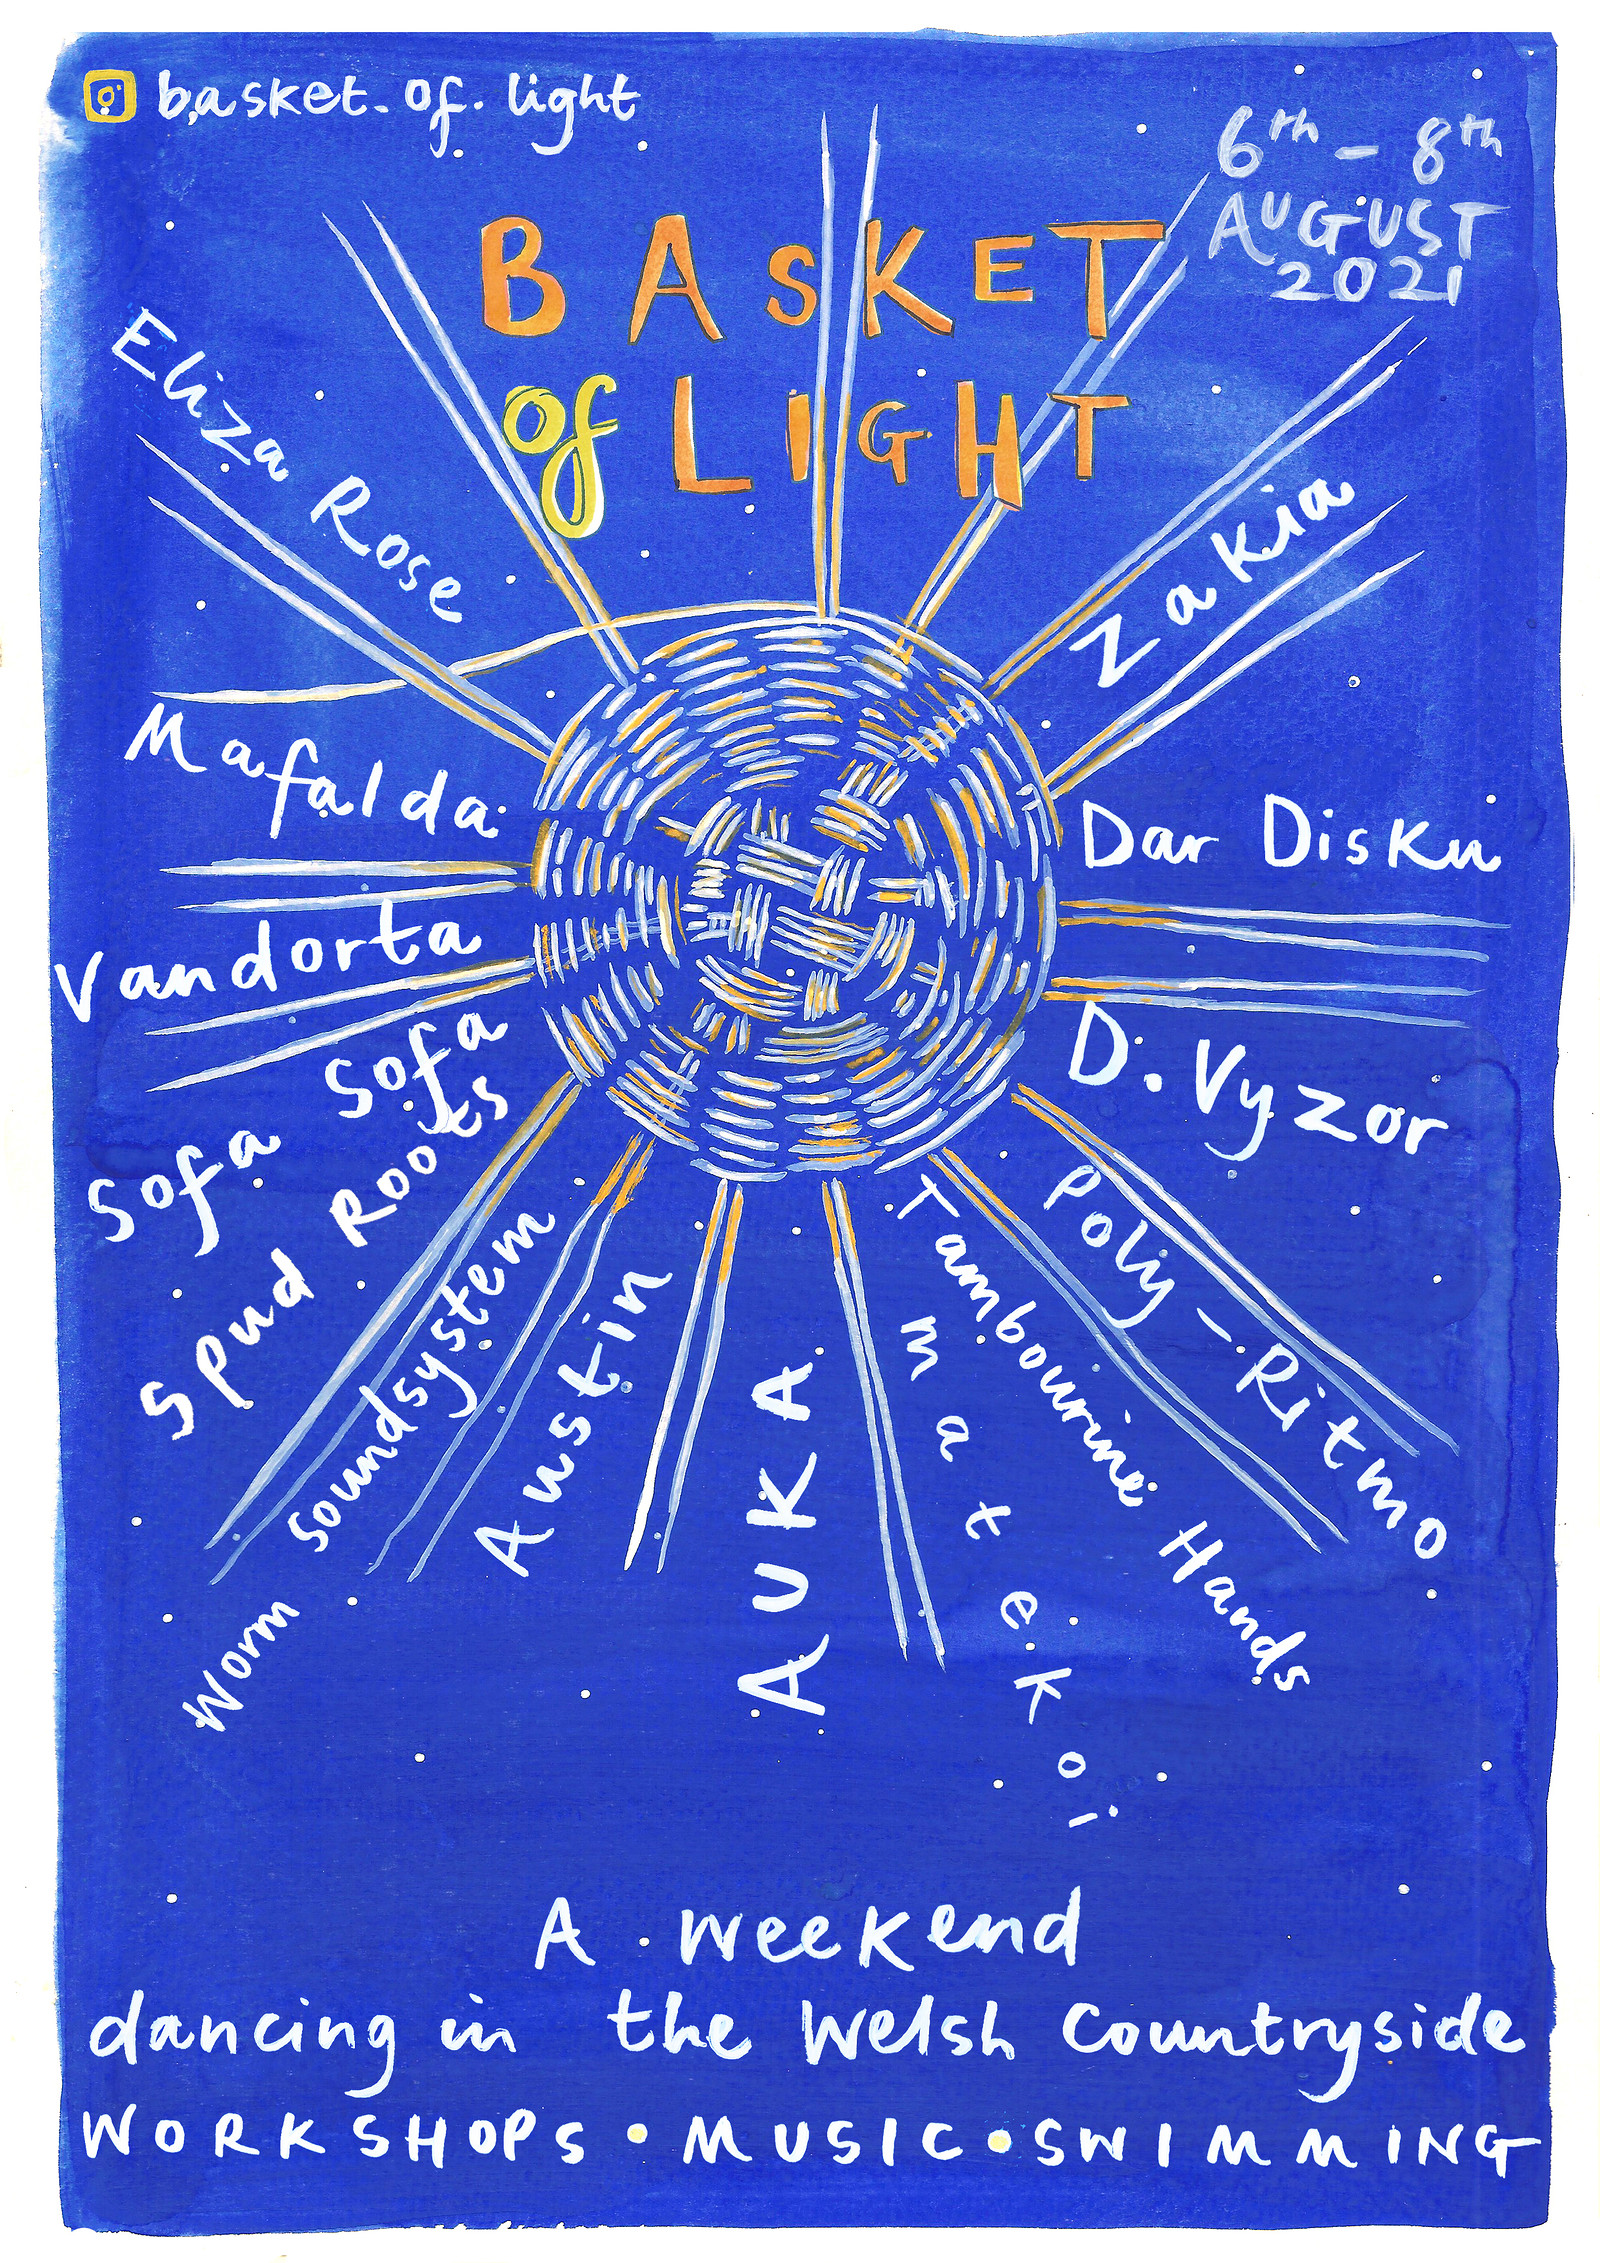 basket_of_light
6th - 8th
AUGUST
2021
BASKET
of LIGHT
Eliza Rose
Zakia
Mafalda
Dar Disku
Vandorta
D. Vyzor
Sofa Sofa
Spud Roots
Poly-Ritmo
Worm Soundsystem
Tambourine Hands
Austin
AUKA
matekoi
A weekend
dancing in the Welsh Countryside
WORKSHOPS • MUSIC • SWIMMING